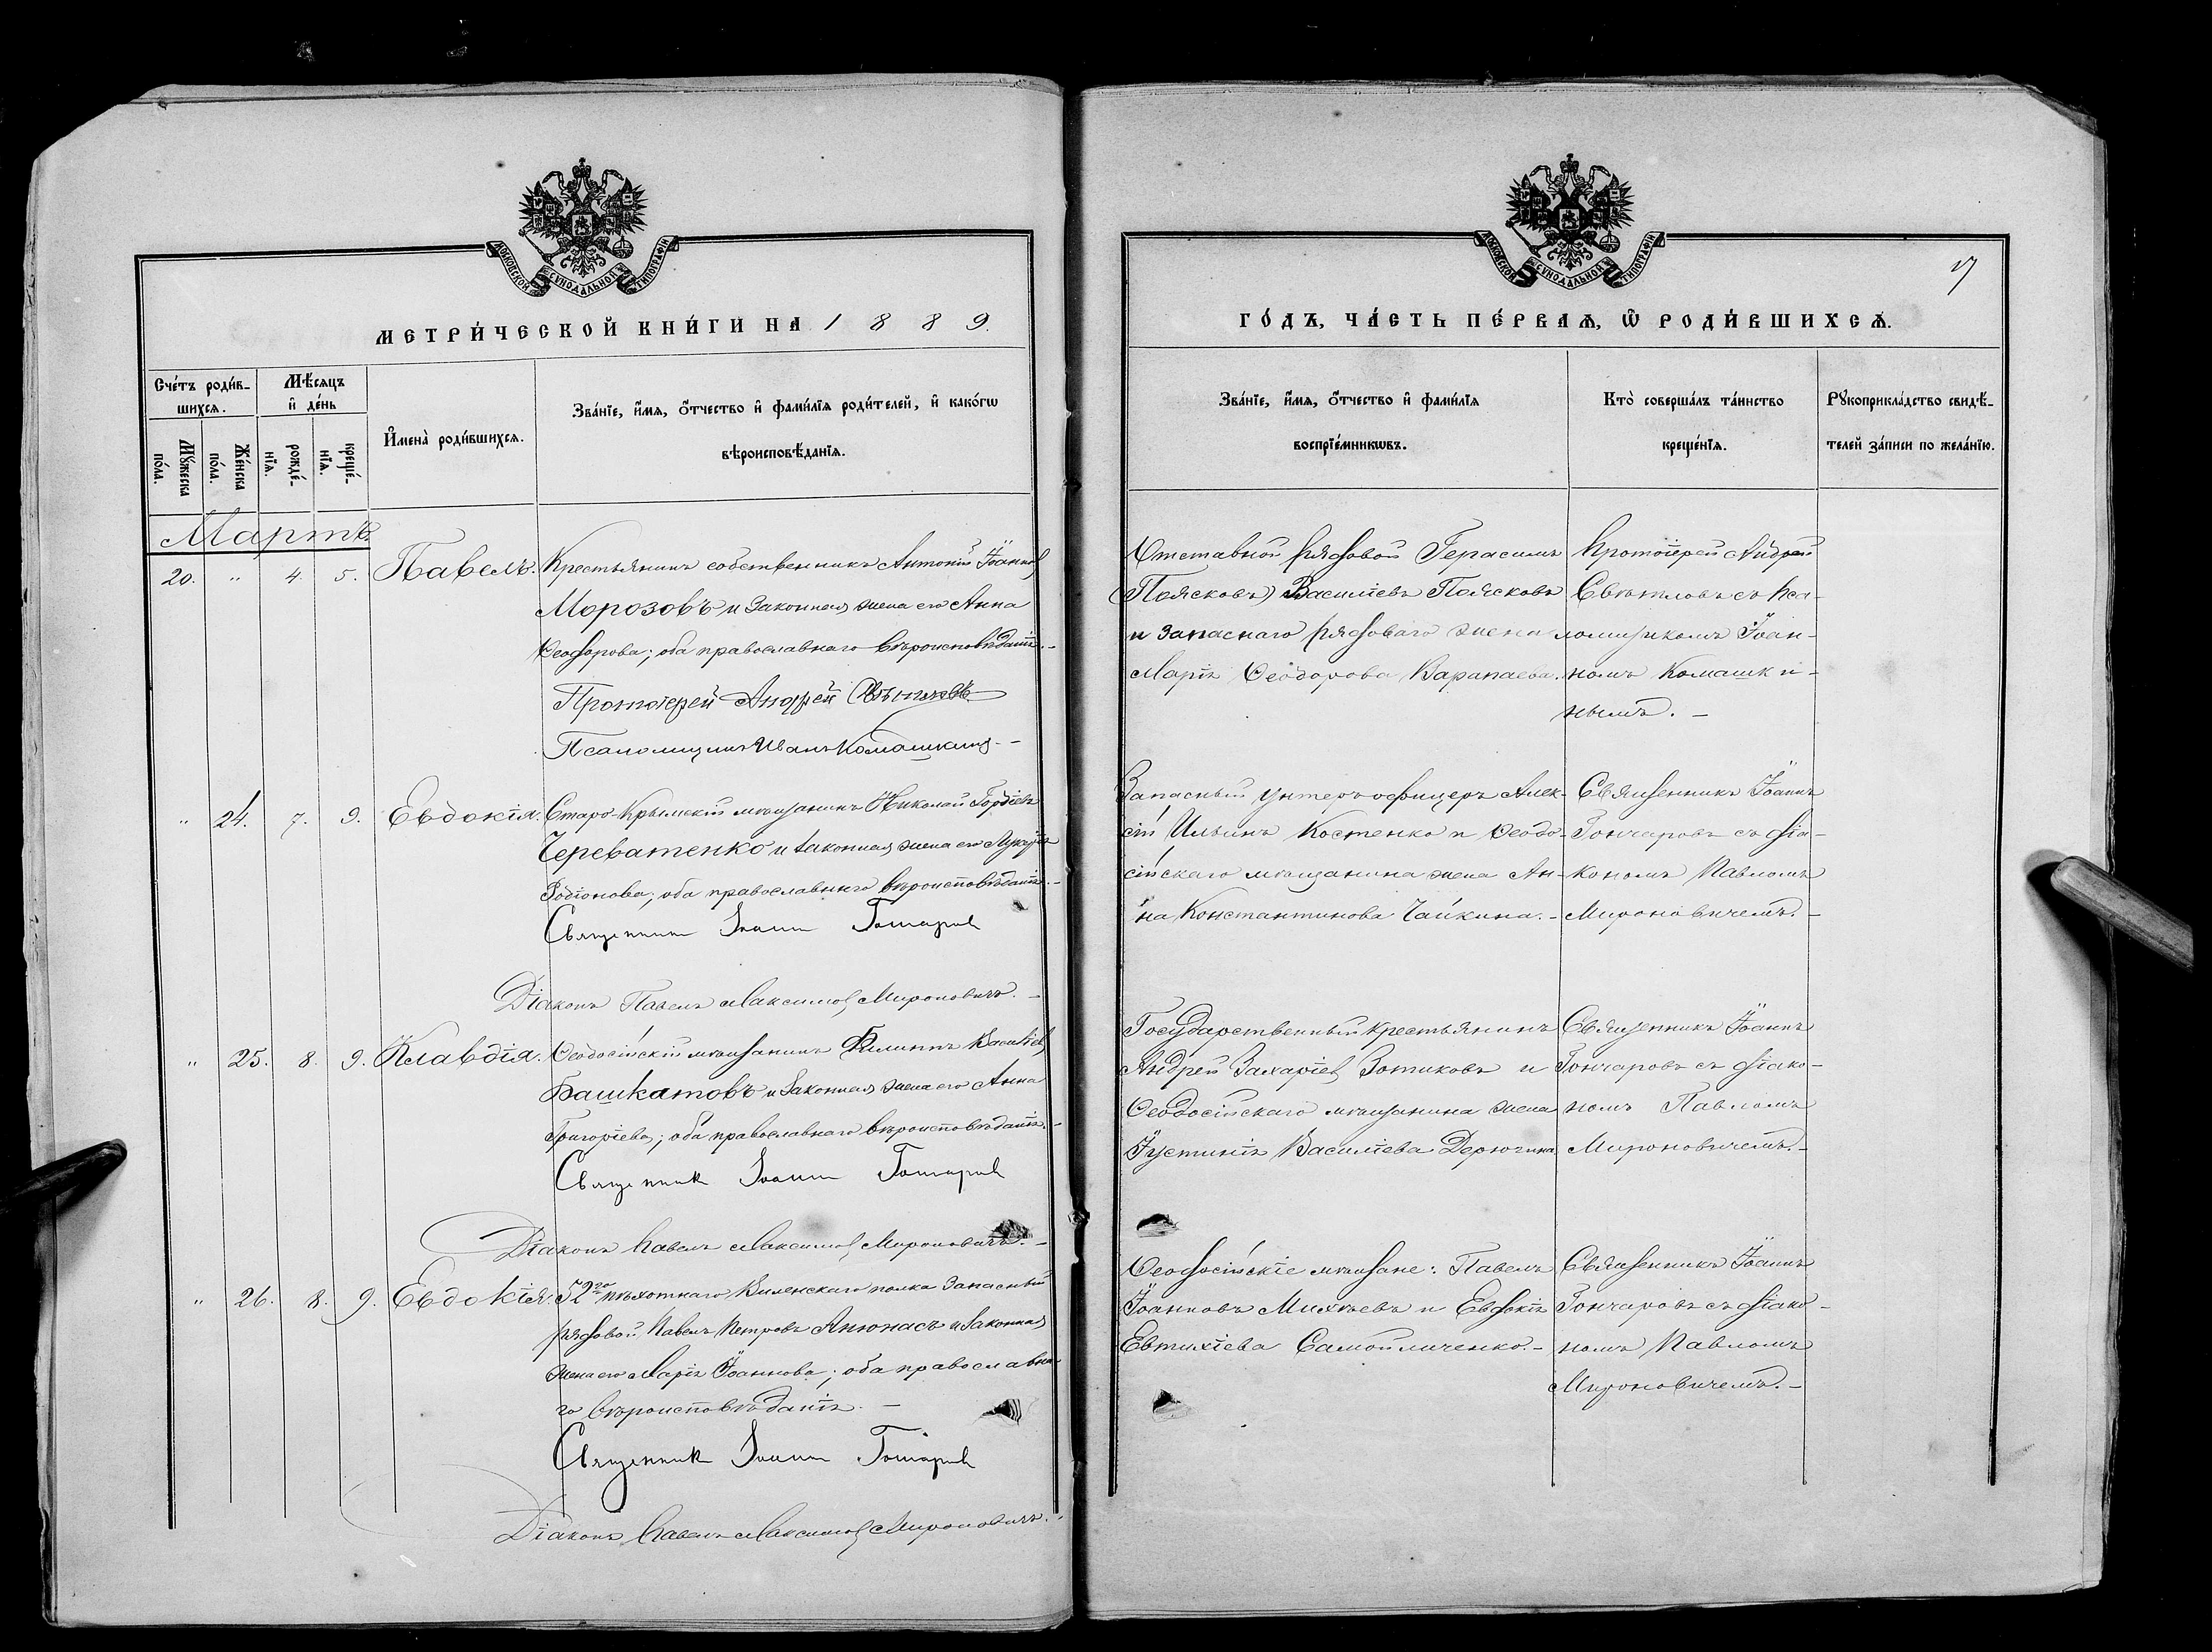 МОСКОВСКОЙ СѴНОДАЛЬНОЙ ТИПОГРАФІИ
МЕТРИ́ЧЕСКОЙ КНИ́ГИ НА 1889.
Сче́тъ роди́в-
шихсѧ.
Мѣ́сѧцъ
и҆ де́нь
И҆мена̀ роди́вшихсѧ.
Зва́нїе, и҆́мѧ, ѻ҆́тчество и҆ фами́лїѧ роди́телей, и҆ како́гѡ
вѣроисповѣ́данїѧ.
Мꙋ́жеска
по́ла.
Же́нска
по́ла.
рожде́-
нїѧ.
креще́-
нїѧ.
Мартъ.
20. " 4. 5. Павелъ. Крестьянинъ собственникъ Антоній Іоанновъ
Морозовъ и законная жена его Анна
Ѳеодорова; оба православнаго вѣроисповѣданія.-
Протоіерей Андрей Свѣтловъ
Псаломщикъ Иванъ Комашкинъ.-
" 24. 7. 9. Евдокія. Старо-Крымскій мѣщанинъ Николай Гордіевъ
Череватенко и законная жена его Лукерія
Родіонова; оба православнаго вѣроисповѣданія.-
Священникъ Іоаннъ Гончаровъ
Діаконъ Павелъ Максимовъ Мироновичъ.-
" 25. 8. 9. Клавдія. Ѳеодосійскій мѣщанинъ Филиппъ Василіевъ
Башкатовъ и законная жена его Анна
Григоріева; оба православнаго вѣроисповѣданія.-
Священникъ Іоаннъ Гончаровъ
Діаконъ Павелъ Максимовъ Мироновичъ.-
" 26. 8. 9. Евдокія. 52го пѣхотнаго Виленскаго полка запасный
рядовой Павелъ Петровъ Апонасъ и законная
жена его Марія Іоаннова; оба православна-
го вѣроисповѣданія.-
Священникъ Іоаннъ Гончаровъ
Діаконъ Павелъ Максимовъ Мироновичъ.-
МОСКОВСКОЙ СѴНОДАЛЬНОЙ ТИПОГРАФІИ
ГО́ДЪ, ЧА́СТЬ ПЕ́РВАѦ, Ѽ РОДИ́ВШИХСѦ.
Зва́нїе, и҆́мѧ, ѻ҆́тчество и҆ фами́лїѧ
воспрїе́мникѡвъ.
Кто̀ соверша́лъ та́инство
креще́нїѧ.
Рꙋкоприкла́дство свидѣ́-
телей за́писи по жела́нїю.
Отставной рядовой Герасимъ
(Поясковъ) Василіевъ Поясковъ
и запаснаго рядоваго жена
Марія Ѳеодорова Варапаева.
Протоіерей Андрей
Свѣтловъ съ пса-
ломщикомъ Іоан-
номъ Комашки-
нымъ.-
Запасный унтеръ-офицеръ Алек-
сій Ильинъ Костенко и Ѳеодо-
сійскаго мѣщанина жена Ан-
на Константинова Чайкина.-
Священникъ Іоаннъ
Гончаровъ съ діа-
кономъ Павломъ
Мироновичемъ.-
Государственный крестьянинъ
Андрей Захаріевъ Зотиковъ и
Ѳеодосійскаго мѣщанина жена
Іустинія Василіева Дерюгина
Священникъ Іоаннъ
Гончаровъ съ діако-
номъ Павломъ
Мироновичемъ.-
Ѳеодосійскіе мѣщане: Павелъ
Іоанновъ Михѣевъ и Евдокія
Евтихіева Самойличенко.-
Священникъ Іоаннъ
Гончаровъ съ діако-
номъ Павломъ
Мироновичемъ.-